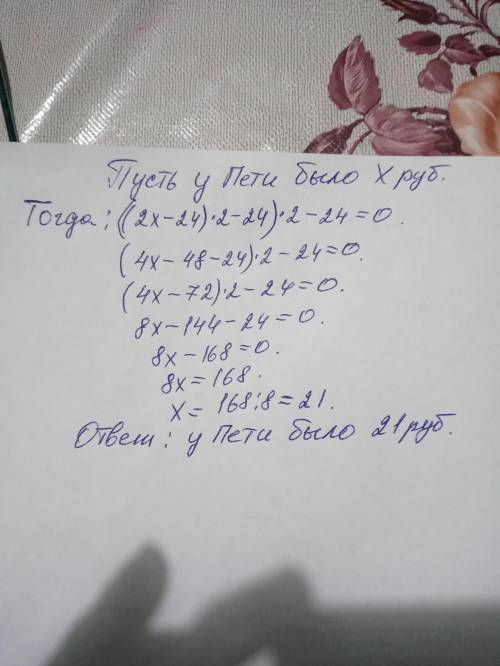 Пусть у Пети было X руб.
Тогда: ((2x-24)·2-24)·2-24=0.
(4x-48-24)·2-24=0.
(4x-72)·2-24=0.
8x-144-24=0.
8x-168=0.
8x=168.
x=168:8=21.
Ответ: у Пети было 21 руб.